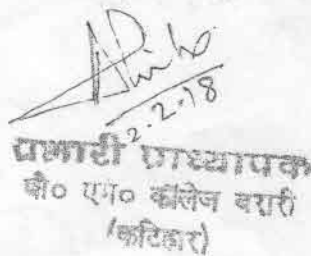 2.2.18
प्रभारी प्राध्यापक
बी० एम० कॉलेज बरारी
(कटिहार)